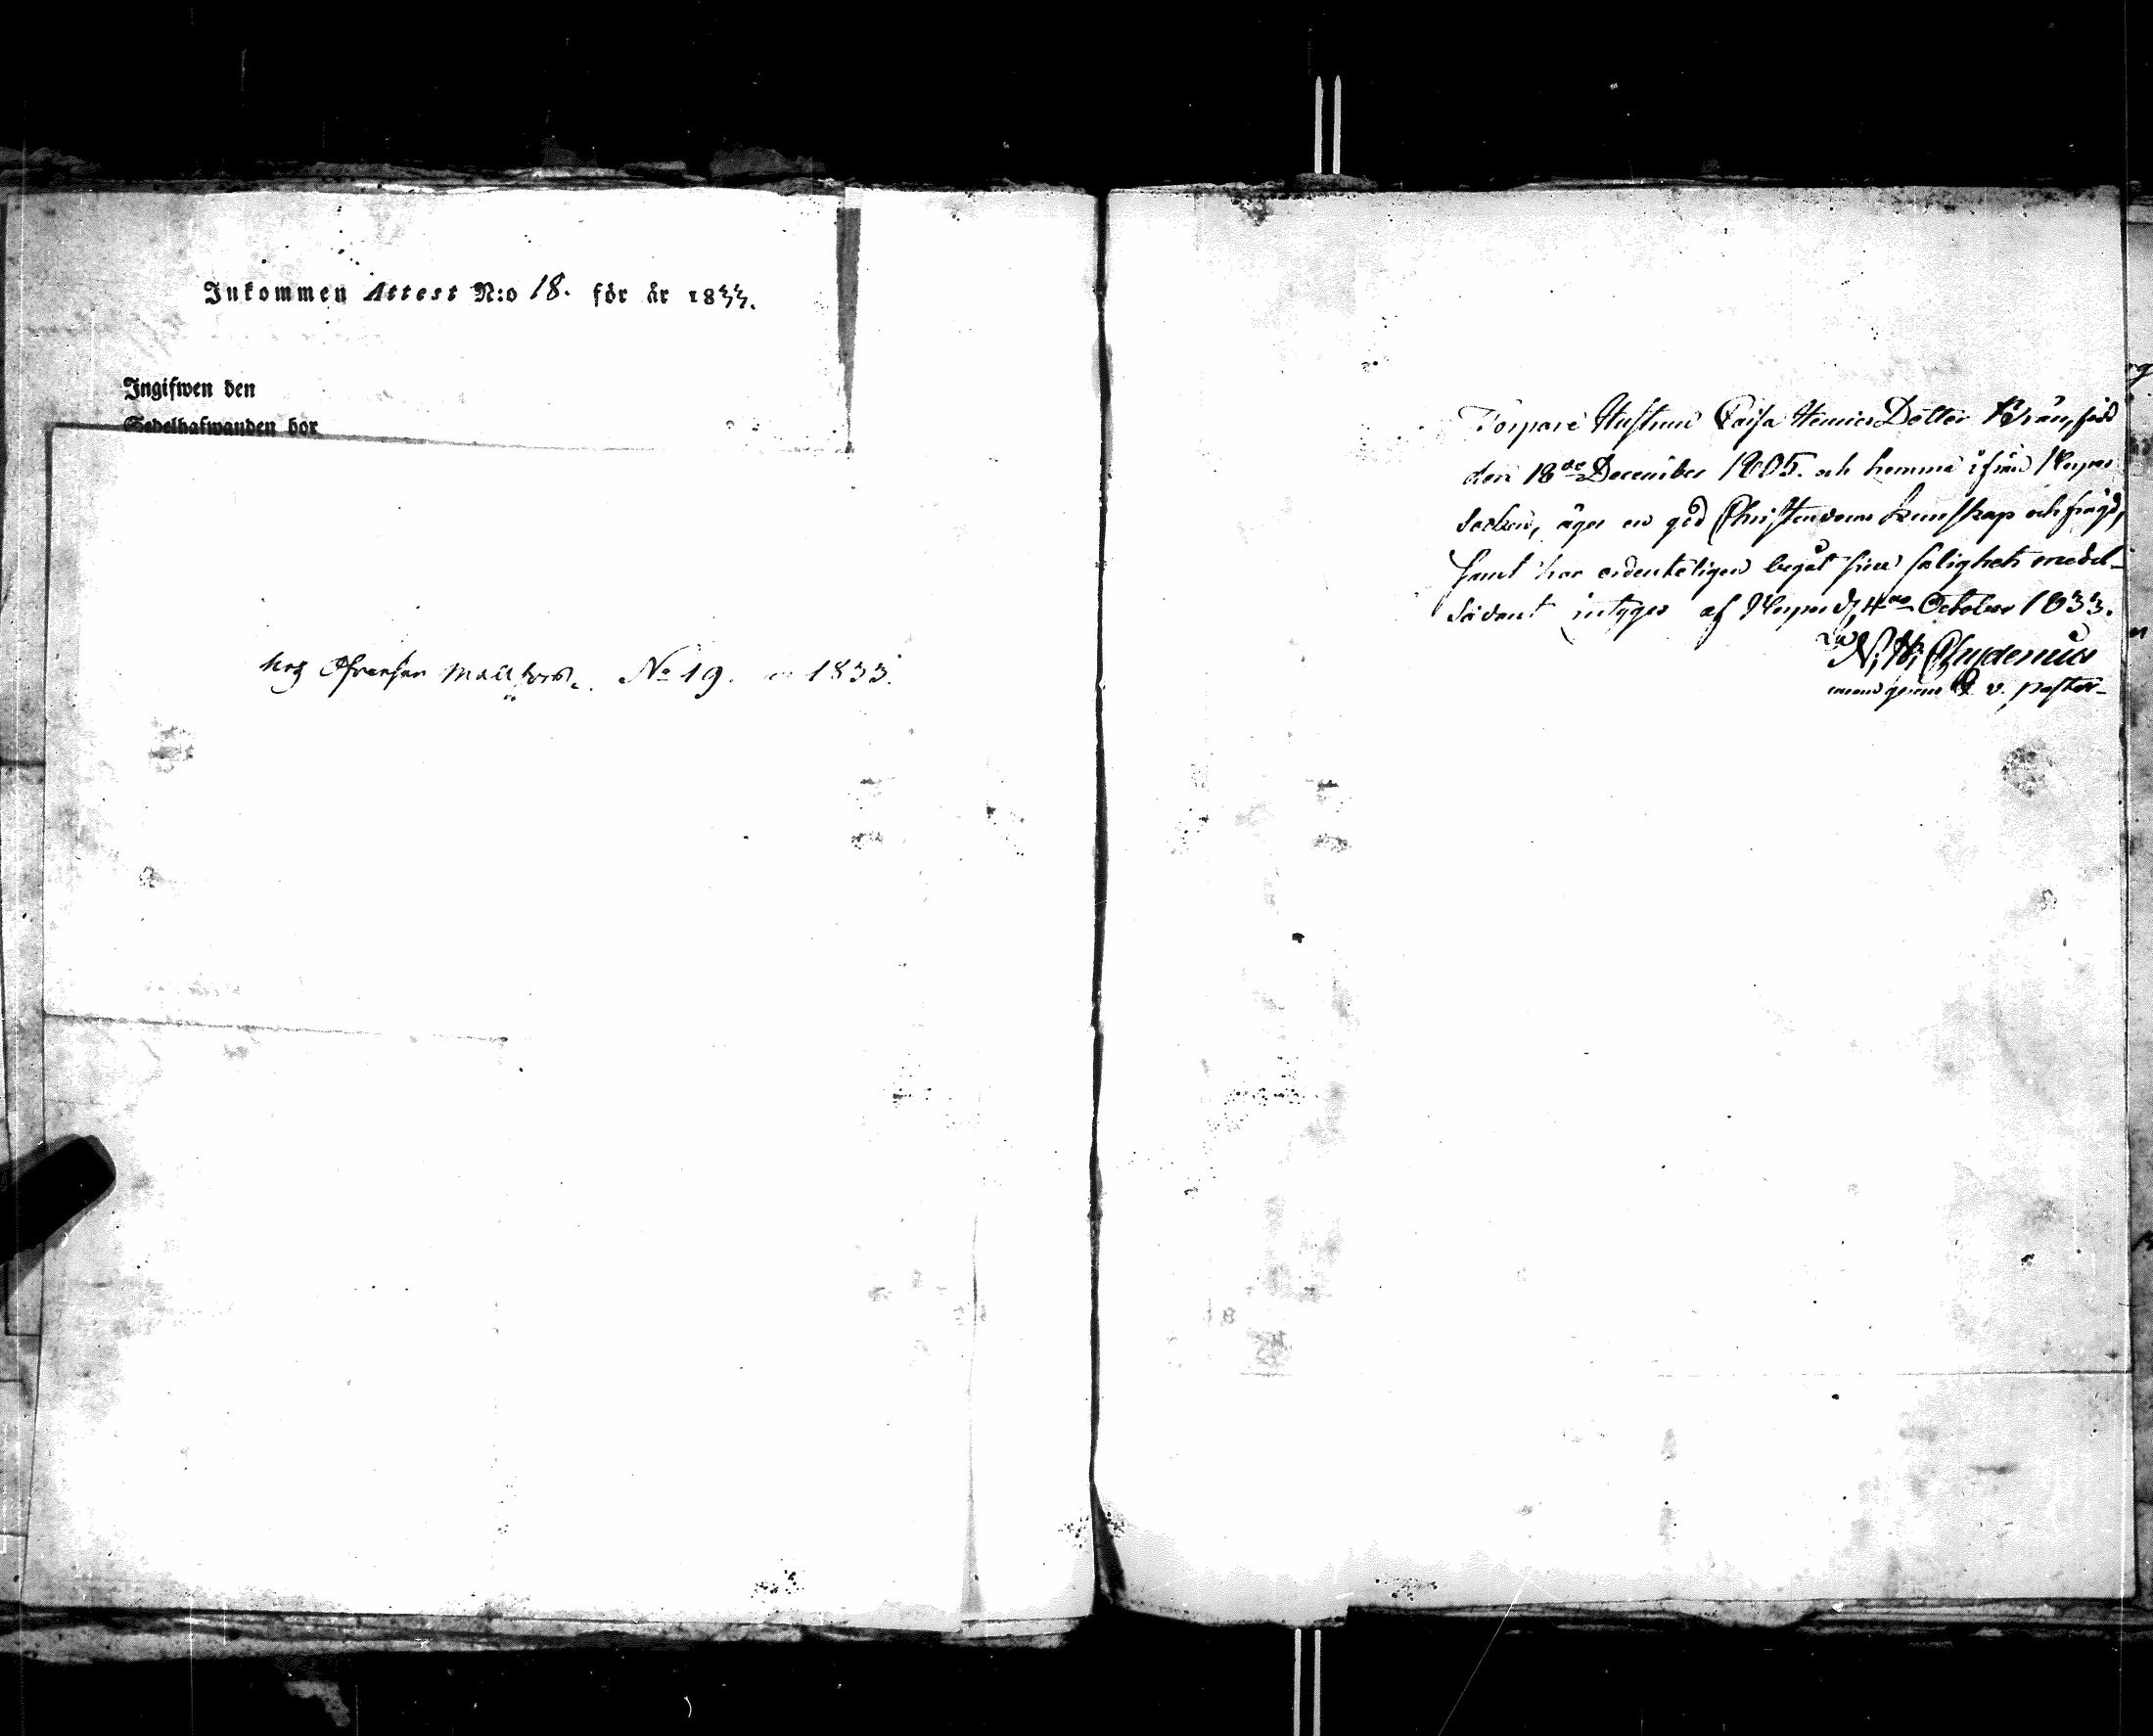 Inkommen Attest N:o 18. för år 1833.
Ingifwen den
Sedelhafwanden bor
hos Afvenfan Mattsson. No 19. 1833.
Torpare Hustrun Caisa Henrics Dotter född
den 18de December 1805. och hemma ifrån Nerpes
Socken, äger en god Christendoms kunskap och frägd,
samt har ordenteligen begåt sine salighets medel
sådant intyges af Nerpes d. 4de October 1833.
N. H. Chydenius
v. pastor